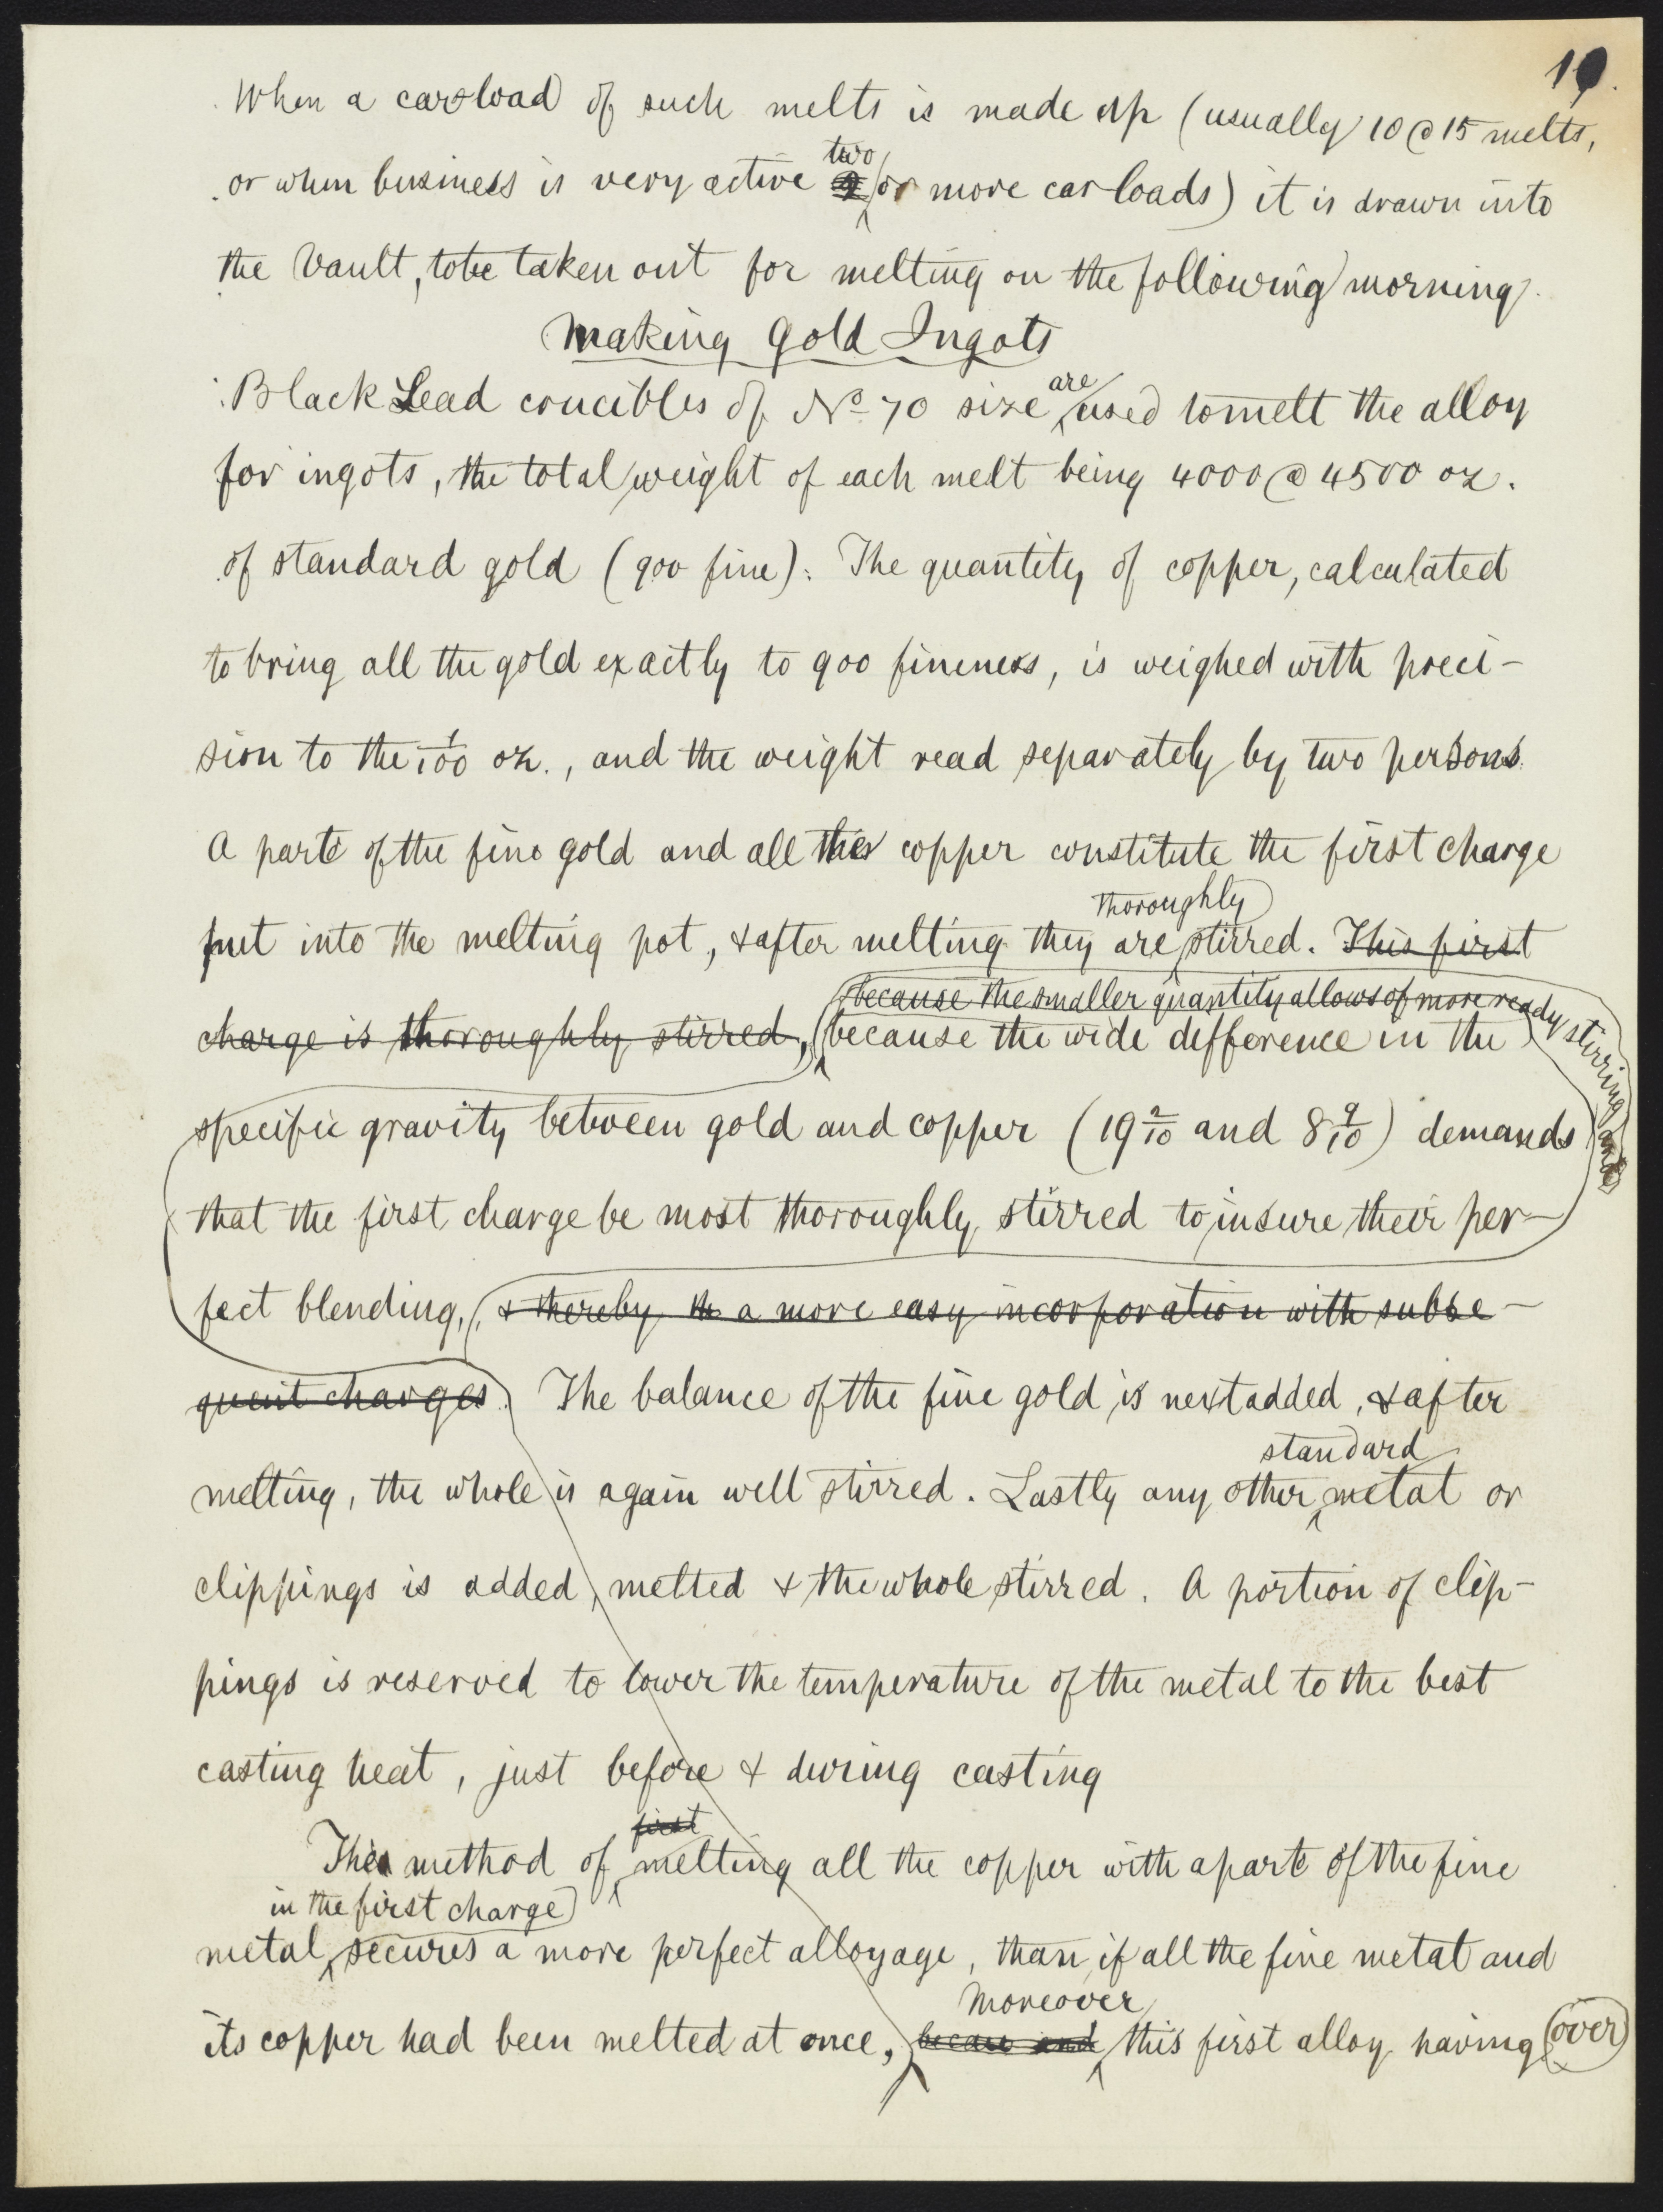 19.
When a car load of such melts is made up (usually 10 @ 15 melts,
two
or when business is very active 2 or more car loads) it is drawn into
the Vault, to be taken out for melting on the following morning.
Making Gold Ingots
are
Black Lead crucibles of No 70 size used to melt the alloy
for ingots, the total weight of each melt being 4000 @ 4500 oz.
of standard gold (900 fine). The quantity of copper, calculated
to bring all the gold exactly to 900 fineness, is weighed with preci-
sion to the 1/100 oz., and the weight read separately by two persons.
A part of the fine gold and all the copper constitute the first charge
thoroughly
put into the melting pot, & after melting they are stirred. This first
because the smaller quantity allows of more ready stirring and
charge is thoroughly stirred, because the wide difference in the
specific gravity between gold and copper (19 2/10 and 8 9/10) demands
that the first charge be most thoroughly stirred to insure their per-
fect blending, & thereby a more easy incorporation with subse-
quent charges. The balance of the fine gold is next added, & after
standard
melting, the whole is again well stirred. Lastly any other metal or
clippings is added, melted & the whole stirred. A portion of clip-
pings is reserved to lower the temperature of the metal to the best
casting heat, just before & during casting
first
This method of melting all the copper with a part of the fine
in the first charge
metal, secures a more perfect alloyage, than if all the fine metal and
Moreover
its copper had been melted at once, and this first alloy having (over)